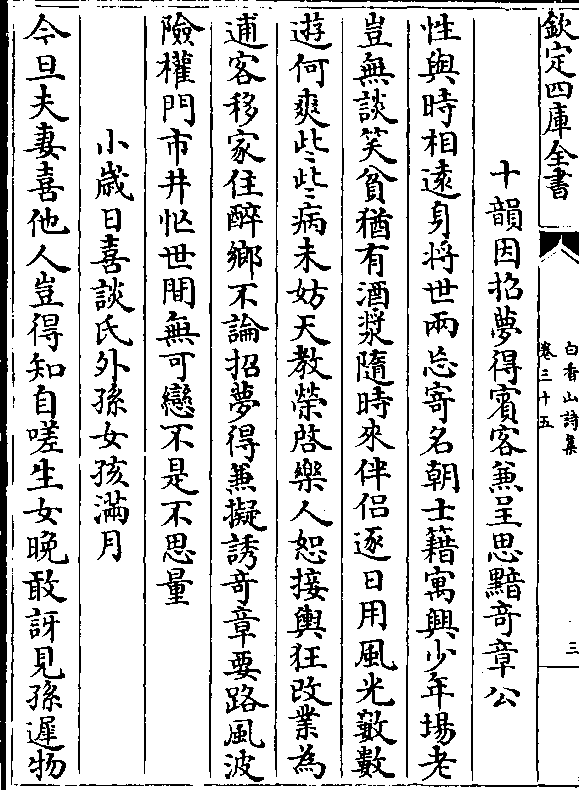 欽定四庫全書
白香山詩集
卷三十五
三
十韻因招夢得賓客兼呈思黯奇章公
性與時相逺身将世兩忘寄名朝士籍寓興少年場老
豈無談笑貧猶有酒漿隨時來伴侣逐日用風光數數
遊何爽些些病未妨天教榮啓樂人恕接輿狂改業為
逋客移家住醉鄉不論招夢得兼擬誘奇章要路風波
險權門市井忙世間無可戀不是不思量
小歳日喜談氏外孫女孩滿月
今旦夫妻喜他人豈得知自嗟生女晚敢訝見孫遲物